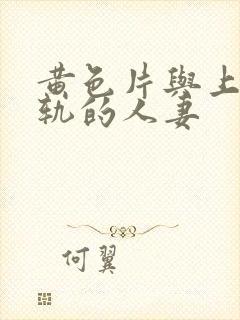 黄色片與上
軌的人妻
何翼